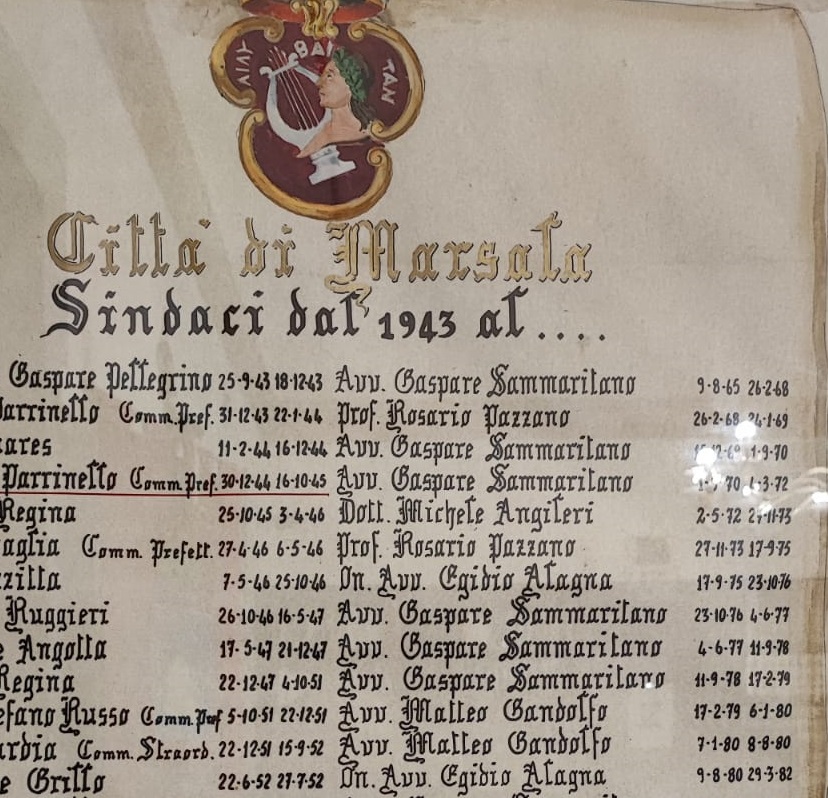 ΛΙΛΥ ΒΑΙ ΤΑΝ
Città di Marsala
Sindaci dal 1943 al....
Gaspare Pellegrino 25-9-43 18-12-43 Avv. Gaspare Sammaritano 9-8-65 26-2-68
Parrinello Comm.Pref. 31-12-43 22-1-44 Prof. Rosario Pazzano 26-2-68 24-1-69
ares 11-2-44 16-12-44 Avv. Gaspare Sammaritano 1-9-70
Parrinello Comm.Pref. 30-12-44 16-10-45 Avv. Gaspare Sammaritano 70 -3-72
Regina 25-10-45 3-4-46 Dott. Michele Angileri 2-5-72 27-11-73
aglia Comm. Prefett. 27-4-46 6-5-46 Prof. Rosario Pazzano 27-11-73 17-9-75
zzitta 7-5-46 25-10-46 On. Avv. Egidio Alagna 17-9-75 23-10-76
Ruggieri 26-10-46 16-5-47 Avv. Gaspare Sammaritano 23-10-76 4-6-77
e Angotta 17-5-47 21-12-47 Avv. Gaspare Sammaritano 4-6-77 11-9-78
Regina 22-12-47 4-10-51 Avv. Gaspare Sammaritano 11-9-78 17-2-79
efano Russo Comm.Pref 5-10-51 22-12-51 Avv. Matteo Gandolfo 17-2-79 6-1-80
ardia Comm. Straord. 22-12-51 15-9-52 Avv. Matteo Gandolfo 7-1-80 8-8-80
e Grillo 22-6-52 27-7-52 On. Avv. Egidio Alagna 9-8-80 29-3-82